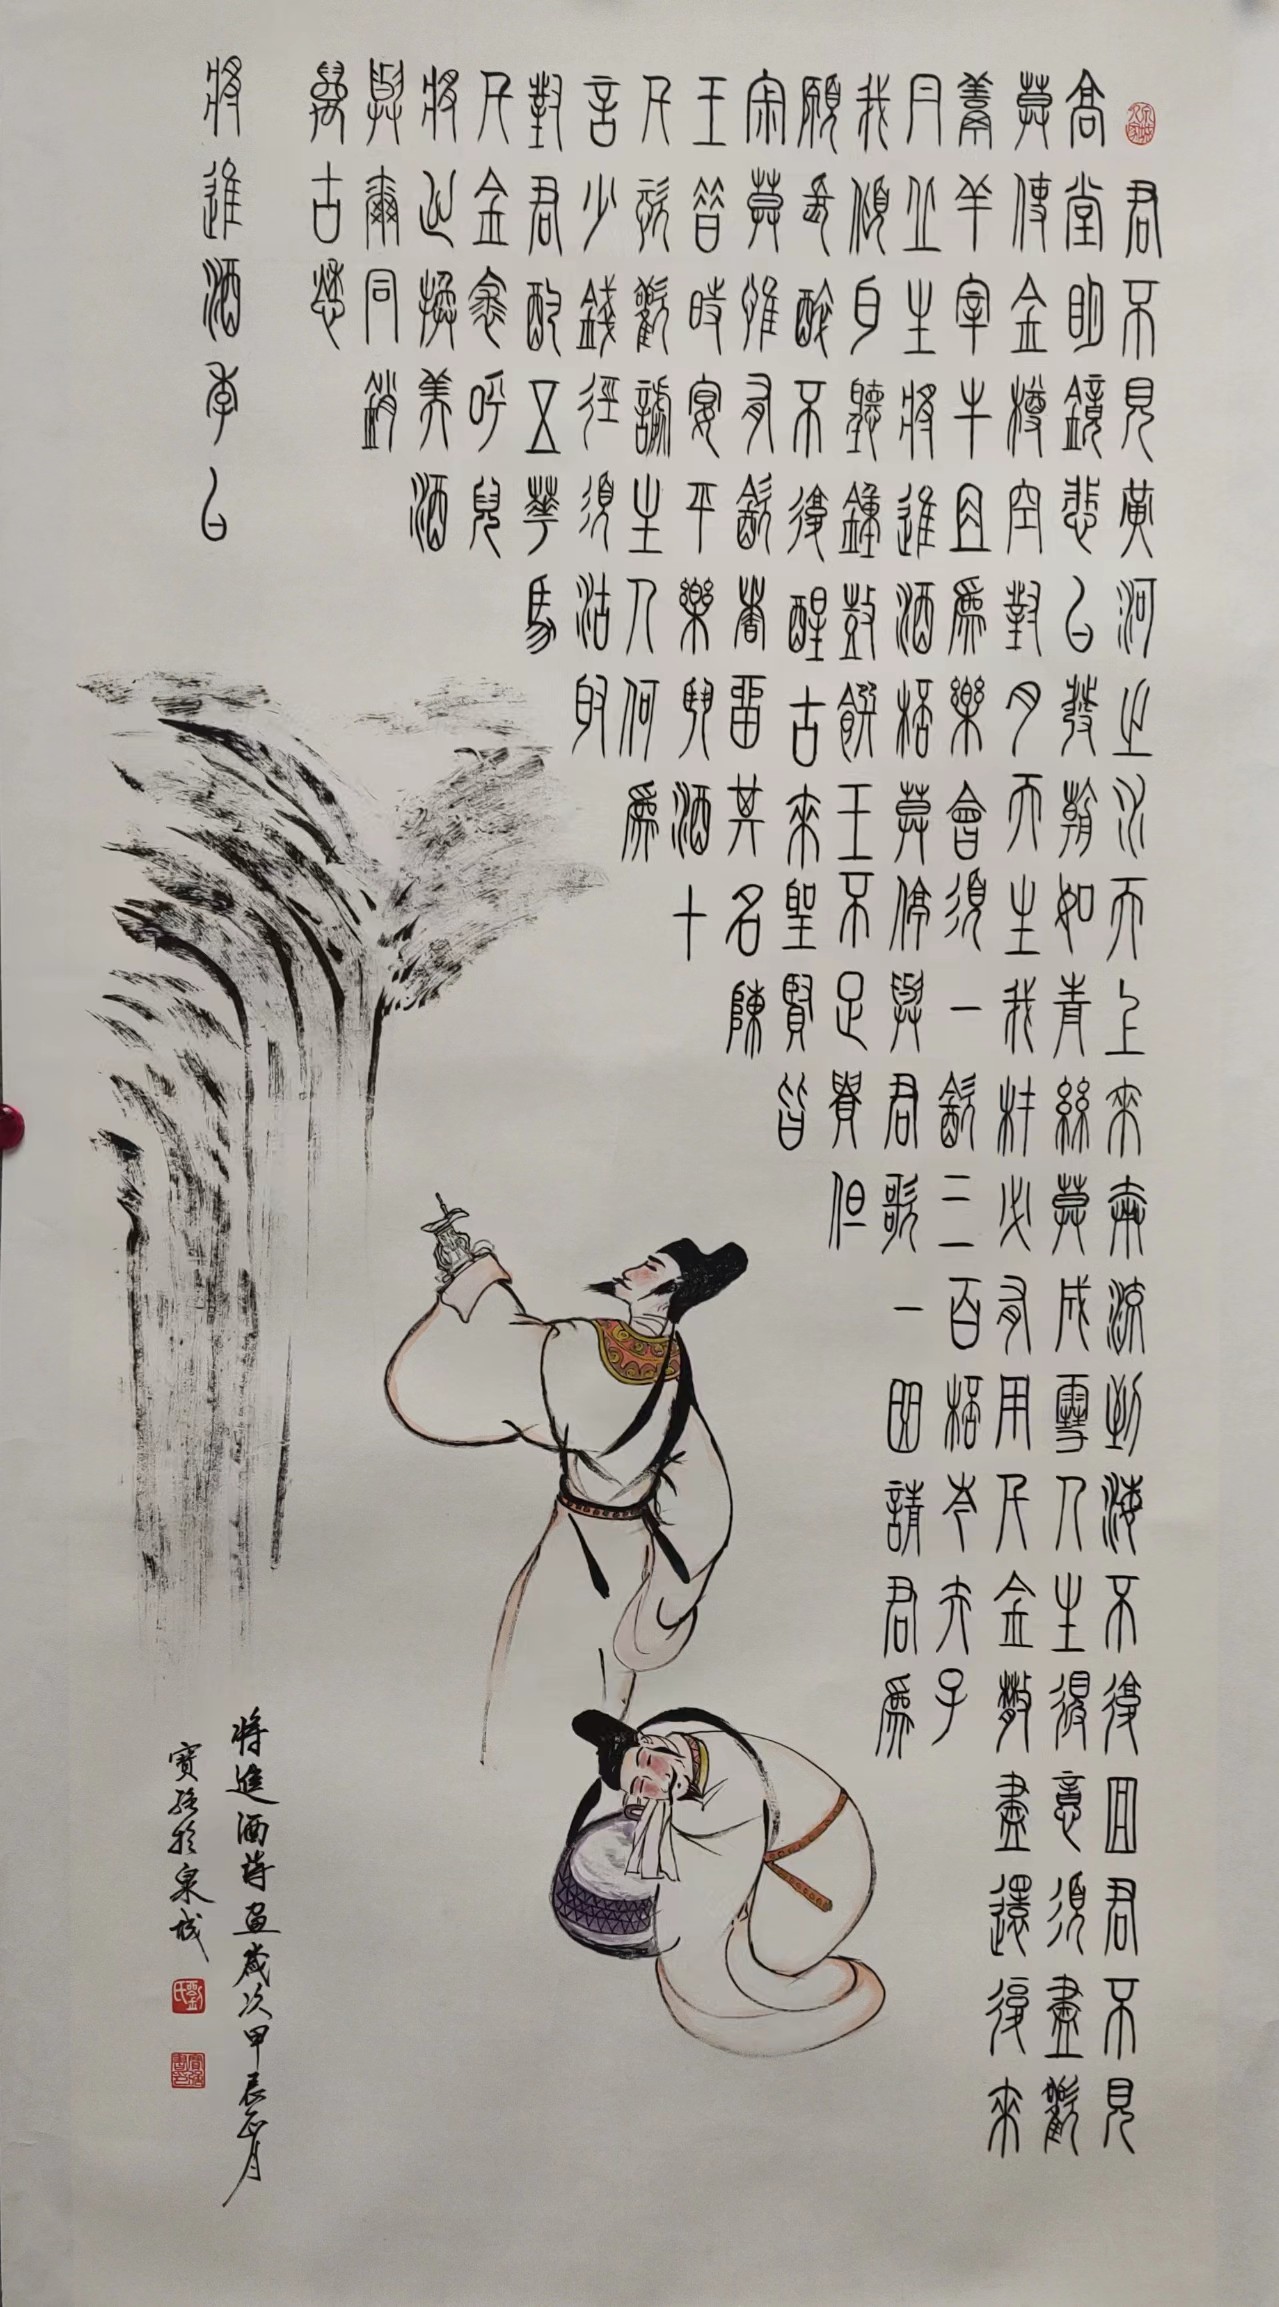 君不見黃河之水天上來奔流到海不復回君不見
高堂明鏡悲白發朝如青絲莫成雪人生得意須盡歡
莫使金樽空對月天生我材必有用千金散盡還復來
烹羊宰牛且為樂會須一飲三百杯岑夫子
丹丘生將進酒杯莫停與君歌一曲請君為
我傾耳聽鐘鼓饌玉不足貴但
願長醉不復醒古來聖賢皆
寂莫惟有飲者留其名陳
王昔時宴平樂斗酒十
千恣歡謔主人何為
言少錢徑須沽取
對君酌五華馬
千金裘呼兒
將出換美酒
與爾同銷
萬古愁
將進酒李白
將進酒詩畫歲次甲辰正月
寶強於泉城
劉氏